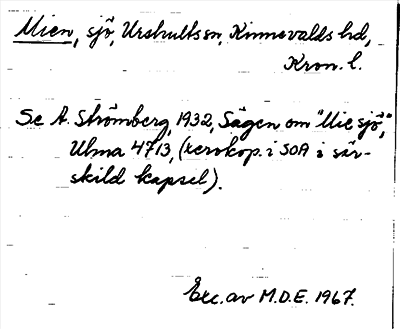 Mien, sjö, Urshultssn, Kinnevalds hd,
Kron. l.
Se A. Strömberg, 1932, Sägen om "Mie sjö,"
Ulma 4713, (xerokop. i SOA i sär-
skild kapsel).
Exc. av M.D.E. 1967.